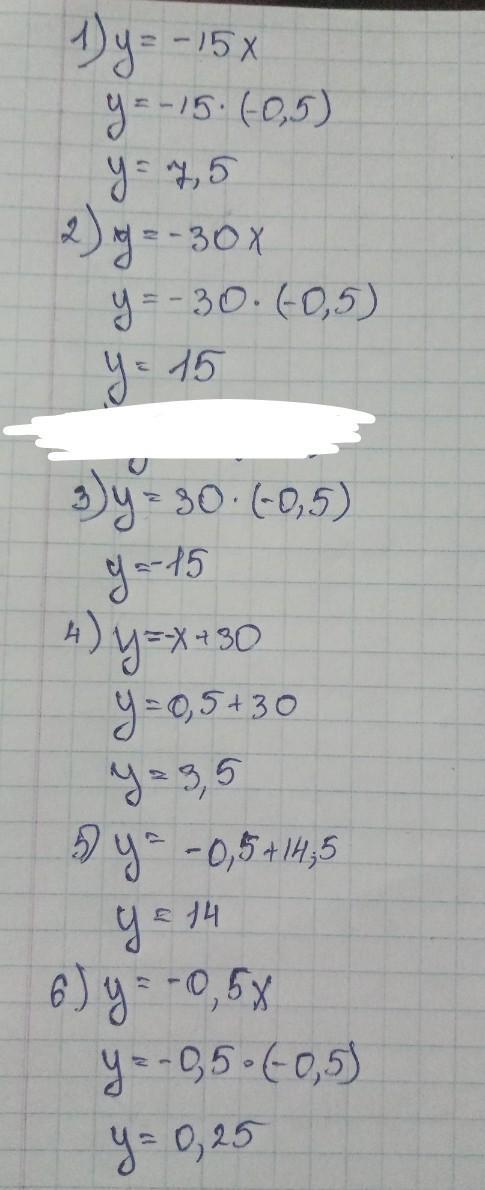 1) y = -15x
y = -15 · (-0,5)
y = 7,5
2) y = -30x
y = -30 · (-0,5)
y = 15
3) y = 30 · (-0,5)
y = -15
4) y = -x + 30
y = 0,5 + 30
y = 3,5
5) y = -0,5 + 14,5
y = 14
6) y = -0,5x
y = -0,5 · (-0,5)
y = 0,25